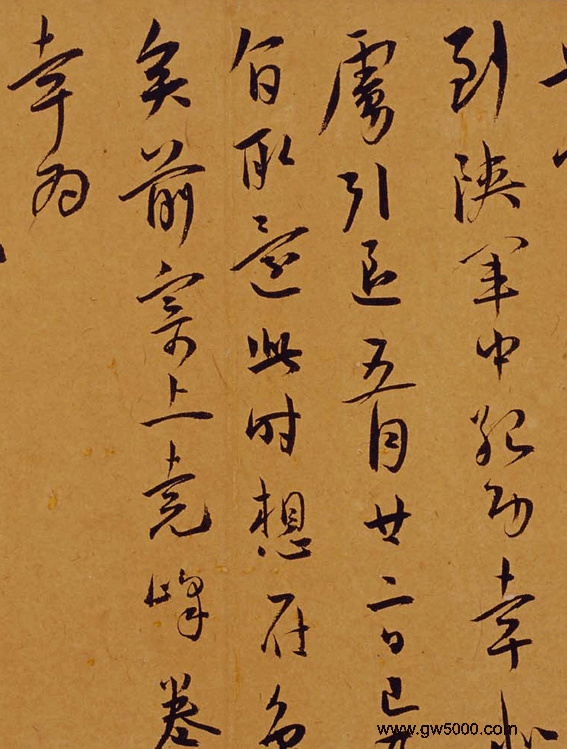 到陝軍中幸
虜引退五月廿二日已
旨取還此時想在
矣前寄上堯峰卷
幸為
www.gw5000.com